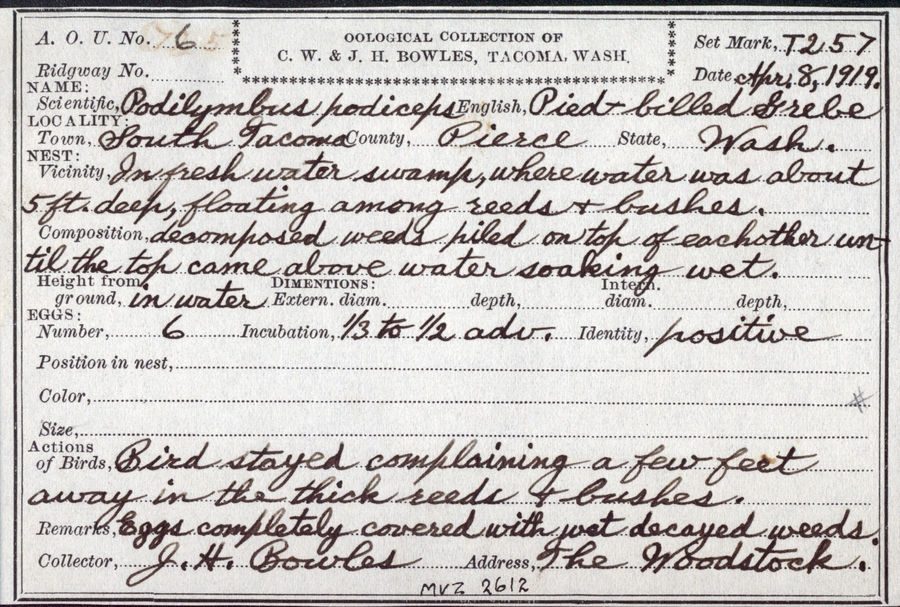 A. O. U. No. 6
OOLOGICAL COLLECTION OF
C. W. & J. H. BOWLES, TACOMA, WASH.
Set Mark, T257
Ridgway No.
Date, Apr. 8, 1919.
NAME:
Scientific, Podilymbus podiceps English, Pied-billed Grebe
LOCALITY:
Town, South Tacoma County, Pierce State, Wash.
NEST:
Vicinity, In fresh water swamp, where water was about
5 ft. deep, floating among reeds & bushes.
Composition, decomposed weeds piled on top of eachother un-
til the top came above water soaking wet.
Height from DIMENTIONS: Intern.
ground, in water Extern. diam. depth, diam. depth,
EGGS:
Number, 6 Incubation, 1/3 to 1/2 adv. Identity, positive
Position in nest,
Color, #
Size,
Actions
of Birds, Bird stayed complaining a few feet
away in the thick reeds & bushes.
Remarks, Eggs completely covered with wet decayed weeds.
Collector, J. H. Bowles Address, The Woodstock.
MVZ 2612